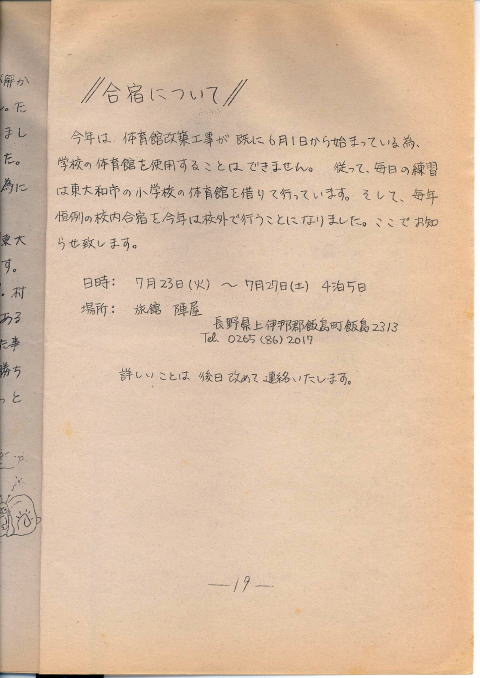 //合宿について//
今年は、体育館改築工事が既に6月1日から始まっている為、
学校の体育館を使用することはできません。従って、毎日の練習
は東大和市の小学校の体育館を借りて行っています。そして、毎年
恒例の校内合宿を今年は校外で行うことになりました。ここでお知
らせ致します。
日時: 7月23日(火) 〜 7月27日(土) 4泊5日
場所: 旅館 陣屋
長野県上伊那郡飯島町飯島2313
Tel. 0265(86)2017
詳しいことは後日改めて連絡いたします。
—19—
解か
た
まし
た。
為に
東大
す。
村
ある
た事
勝ち
っと